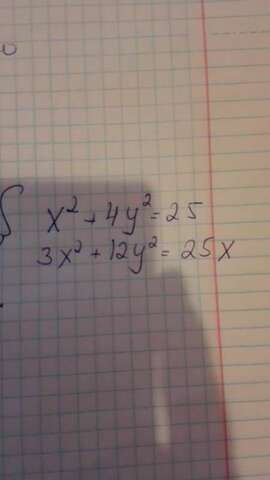 x² + 4y² = 25
3x² + 12y² = 25x